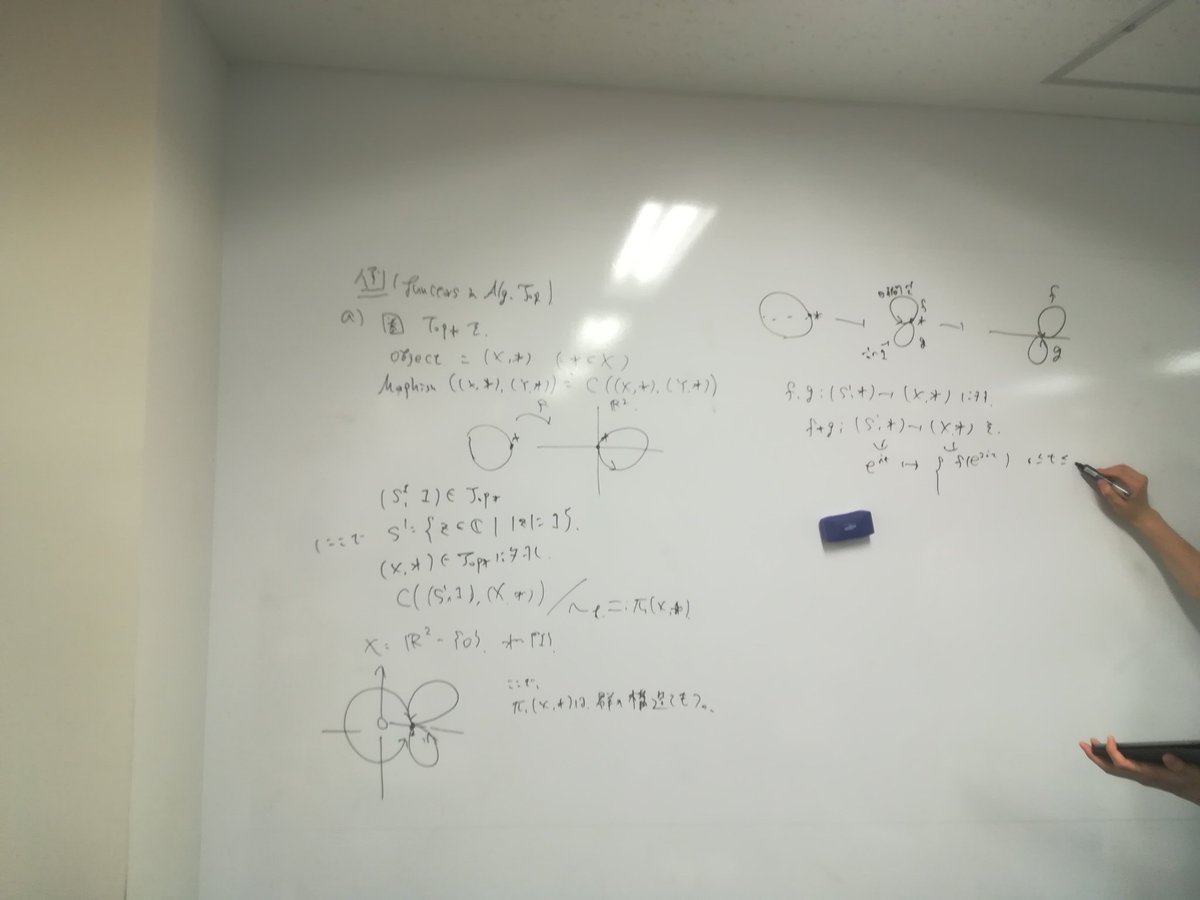 例 (functors in Alg. Top)
a) 圏 Top* を
object = (X,*) (*∈X)
Morphism ((X,*), (Y,*)) = C((X,*), (Y,*))
* * ℝ²
(S¹, 1) ∈ Top*
ここで S¹ = {z∈ℂ | |z|=1}.
(X,*) ∈ Top* に対し
C((S¹,1), (X,*)) / ~ =: π₁(X,*)
X = ℝ² - {0}. * = {1}.
ここで,
π₁(X,*) は 群の構造をもつ。
* → f * g → f g
f, g : (S¹,*) → (X,*) に対し
f+g : (S¹,*) → (X,*) を
e^{it} ↦ { f(e^{2it}) 0≤t≤